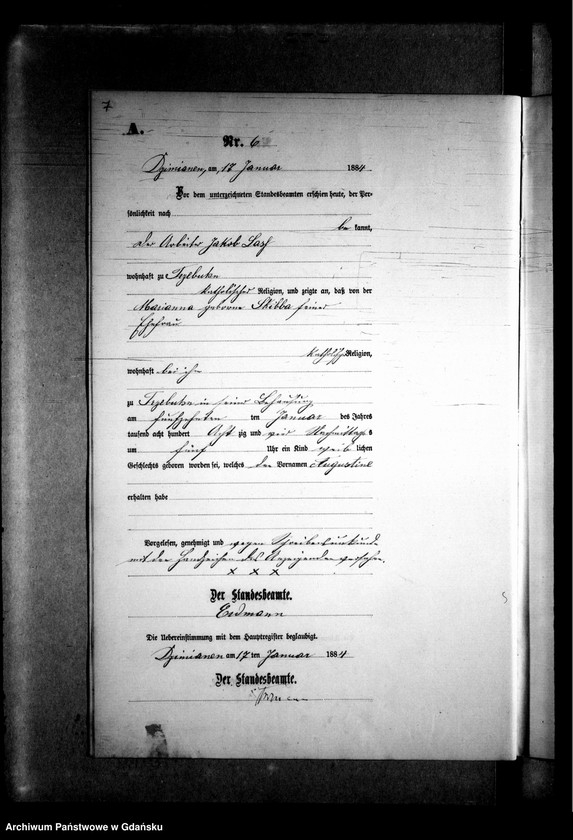 7
A.
Nr. 6
Dzimianen, am 17 Januar 1884
Vor dem unterzeichneten Standesbeamten erschien heute, der Per-
sönlichkeit nach
be kannt,
der Arbeiter Jakob
wohnhaft zu Trzebuhn
katholischer Religion, und zeigte an, daß von der
Marianna geborne Skibba seiner
Ehefrau
katholischer Religion,
wohnhaft bei ihm
zu Trzebuhn in seiner Behausung
am fünfzehnten ten Januar des Jahres
tausend acht hundert Acht zig und vier Nachmittags
um fünf Uhr ein Kind weib lichen
Geschlechts geboren worden sei, welches den Vornamen Augustine
erhalten habe
Vorgelesen, genehmigt und wegen Schreibensunkunde
mit den Handzeichen des Anzeigenden versehen.
x x x
Der Standesbeamte.
Erdmann
Die Uebereinstimmung mit dem Hauptregister beglaubigt.
Dzimianen am 17 ten Januar 1884
Der Standesbeamte.
Archiwum Państwowe w Gdańsku